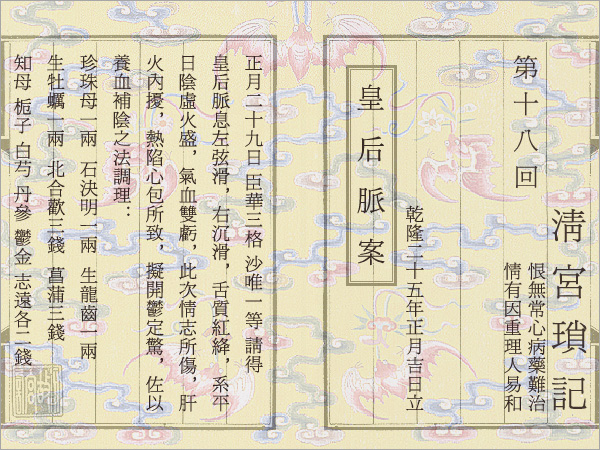 清宮瑣記
恨無常心病藥難治
情有因重理人易和
第十八回
乾隆二十五年正月吉日立
皇后脈案
正月二十九日 臣華三格 沙唯一等 請得
皇后脈息左弦滑，右沉滑，舌質紅絳，系平
日陰虛火盛，氣血雙虧，此次情志所傷，肝
火內擾，熱陷心包所致，擬開鬱定驚，佐以
養血補陰之法調理：
珍珠母一兩 石決明一兩 生龍齒一兩
生牡蠣一兩 北合歡三錢 菖蒲三錢
知母 梔子 白芍 丹參 鬱金 志遠各二錢